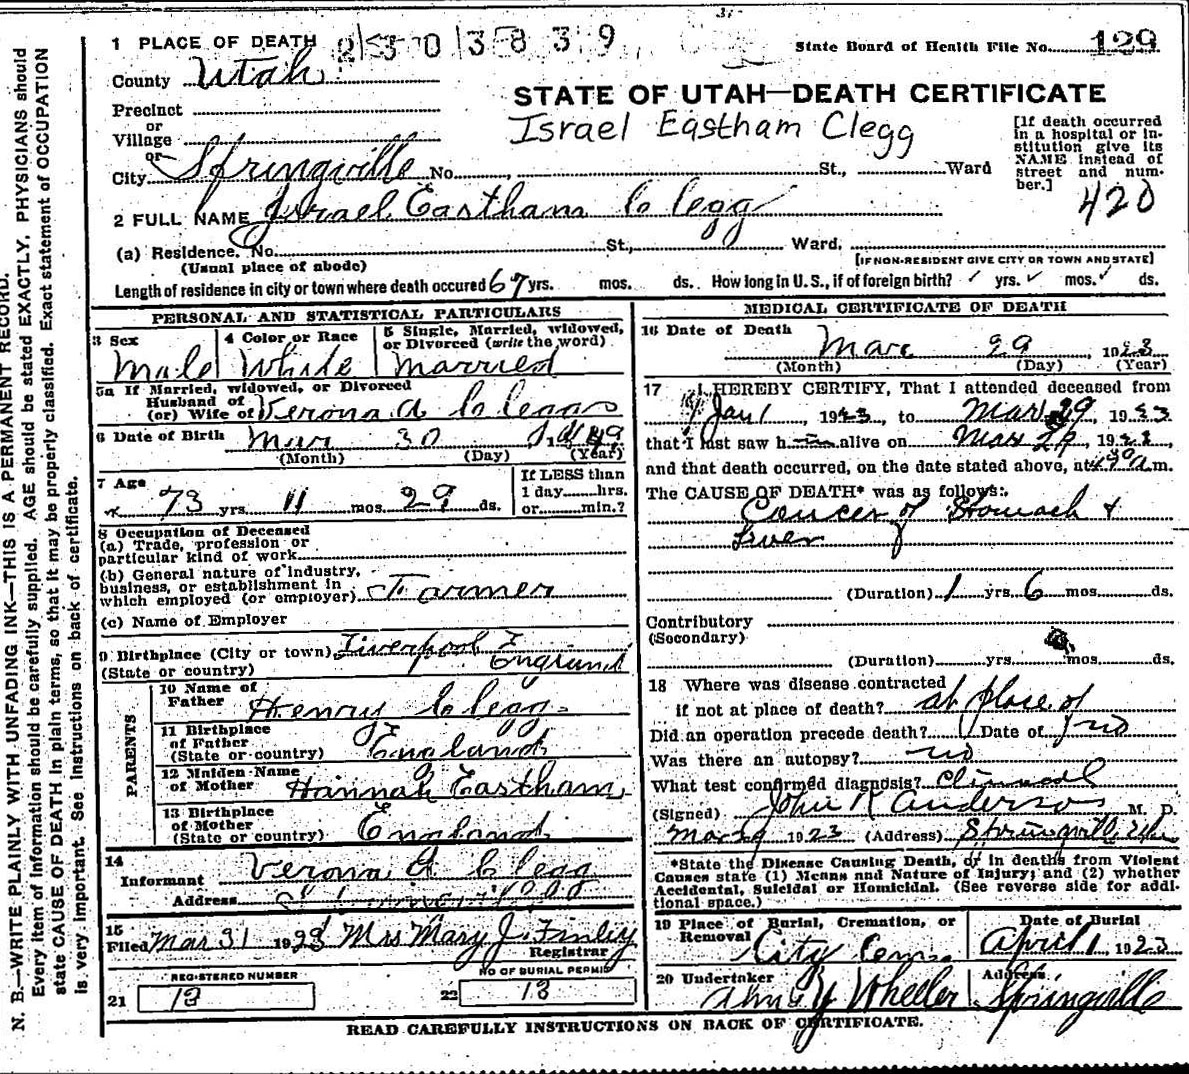 1 PLACE OF DEATH 2303839
State Board of Health File No. 129
County Utah
STATE OF UTAH—DEATH CERTIFICATE
Precinct
or
Village
Israel Eastham Clegg
or
City Springville No. St., Ward
[If death occurred in a hospital or institution give its NAME instead of street and number.]
420
2 FULL NAME Israel Eastham Clegg
(a) Residence. No. St., Ward,
(Usual place of abode) [IF NON-RESIDENT GIVE CITY OR TOWN AND STATE]
Length of residence in city or town where death occured 67 yrs. mos. ds. How long in U. S., if of foreign birth? yrs. mos. ds.
PERSONAL AND STATISTICAL PARTICULARS
3 Sex
Male
4 Color or Race
White
5 Single, Married, widowed, or Divorced (write the word)
Married
5a If Married, widowed, or Divorced
Husband of
(or) Wife of Verona A Clegg
6 Date of Birth Mar 30 1849
(Month) (Day) (Year)
7 Age
73 yrs. 11 mos. 29 ds.
If LESS than
1 day hrs.
or min.?
8 Occupation of Deceased
(a) Trade, profession or
particular kind of work
(b) General nature of industry,
business, or establishment in
which employed (or employer) Farmer
(c) Name of Employer
9 Birthplace (City or town) Liverpool
(State or country) England
PARENTS
10 Name of
Father Henry Clegg
11 Birthplace
of Father
(State or country) England
12 Maiden Name
of Mother Hannah Eastham
13 Birthplace
of Mother
(State or country) England
14
Informant Verona A Clegg
Address
15
Filed Mar 31 1923 Mrs Mary J. Finley
Registrar
REGISTERED NUMBER
21 12
NO OF BURIAL PERMIT
22 13
MEDICAL CERTIFICATE OF DEATH
16 Date of Death
Mar 29, 1923
(Month) (Day) (Year)
17 I HEREBY CERTIFY, That I attended deceased from
Jan 1 1923, to Mar 29, 1923
that I last saw h alive on Mar 29, 192
and that death occurred, on the date stated above, at a m.
The CAUSE OF DEATH* was as follows:
Cancer of Stomach &
Liver
(Duration) 1 yrs. 6 mos. ds.
Contributory
(Secondary)
(Duration) yrs. mos. ds.
18 Where was disease contracted
if not at place of death? at place of
Did an operation precede death? no Date of
Was there an autopsy? no
What test confirmed diagnosis? Clinical
(Signed) John R Anderson M. D.
Mar 29 1923 (Address) Springville Utah
*State the Disease Causing Death, or in deaths from Violent
Causes state (1) Means and Nature of Injury; and (2) whether
Accidental, Suicidal or Homicidal. (See reverse side for addi-
tional space.)
19 Place of Burial, Cremation, or
Removal City Cem
Date of Burial
April 1 1923
20 Undertaker
Wheeler
Address
Springville
READ CAREFULLY INSTRUCTIONS ON BACK OF CERTIFICATE.
N. B.—WRITE PLAINLY WITH UNFADING INK—THIS IS A PERMANENT RECORD.
Every item of information should be carefully supplied. AGE should be stated EXACTLY, PHYSICIANS should
state CAUSE OF DEATH in plain terms, so that it may be properly classified. Exact statement of OCCUPATION
is very important. See Instructions on back of certificate.